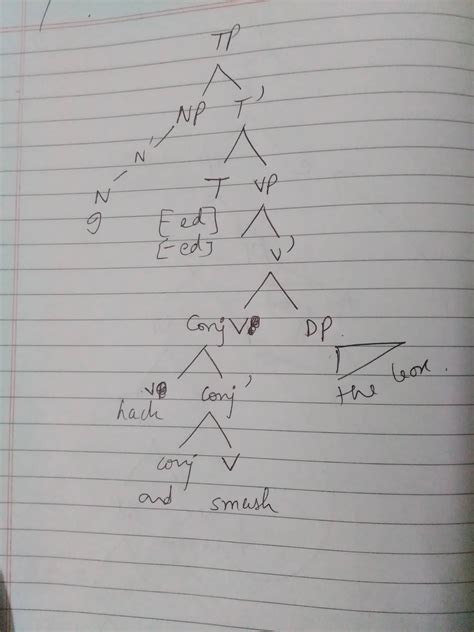 TP
NP T'
N'
N T VP
9 [-ed]
[-ed] V'
Conj V DP
V Conj' the box.
hack
conj V
and smash